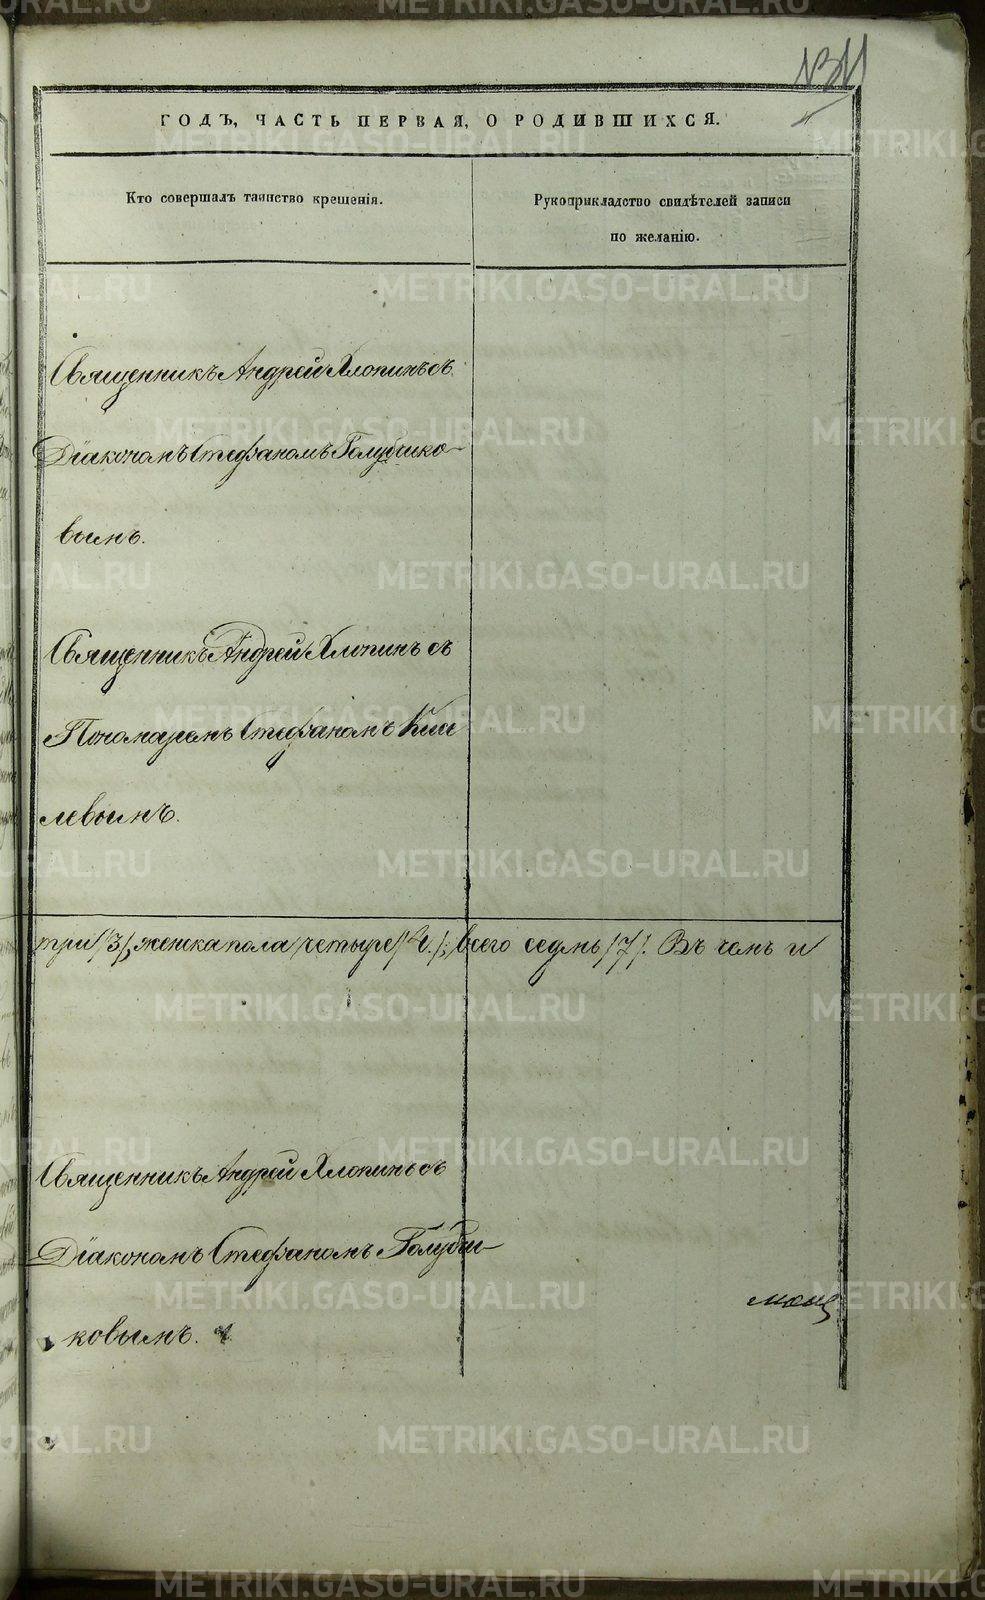 ГОДЪ, ЧАСТЬ ПЕРВАЯ, О РОДИВШИХСЯ.
Кто совершалъ таинство крещенія.
Рукоприкладство свидѣтелей записи
по желанію.
Священникъ Андрей Хлопинъ съ
Діакономъ Стефаномъ Голубчико-
вымъ.
Священникъ Андрей Хлопинъ съ
Пономаремъ Стефаномъ
левымъ.
три /3/, женска пола четыре /4./; всего седмь /7/. Въ чемъ и
Священникъ Андрей Хлопинъ съ
Діакономъ Стефаномъ Голубчи-
ковымъ.
METRIKI.GASO-URAL.RU